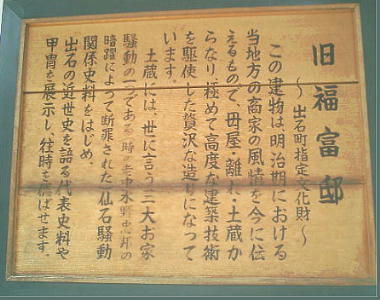 旧福富邸
～出石町指定文化財～
この建物は明治期における
当地方の商家の風情を今に伝
えるもので、母屋・離れ・土蔵か
らなり、極めて高度な建築技術
を駆使した贅沢な造りになって
います。
土蔵には、世に言う三大お家
騒動の一つである時の老中水野忠邦の
暗躍によって断罪された仙石騒動
関係史料をはじめ、
出石の近世史を語る代表史料や
甲冑を展示し、往時を偲ばせます。